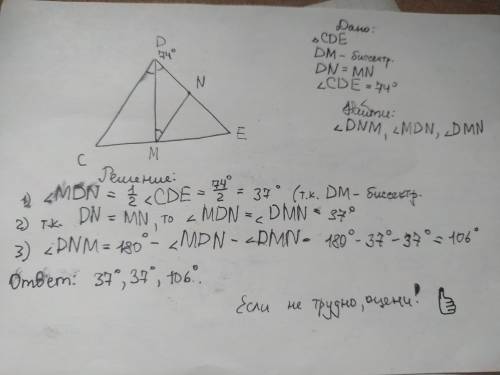 Дано:
△CDE
DM - биссектр.
DN = MN
∠CDE = 74°
Найти:
∠DNM, ∠MDN, ∠DMN
D
74°
N
E
C
M
Решение:
1) ∠MDN = 1/2 ∠CDE = 74°/2 = 37° (т.к. DM - биссектр.
2) т.к. DN = MN, то ∠MDN = ∠DMN = 37°
3) ∠DNM = 180° - ∠MDN - ∠DMN = 180° - 37° - 37° = 106°
Ответ: 37°, 37°, 106°.
Если не трудно, оцени!